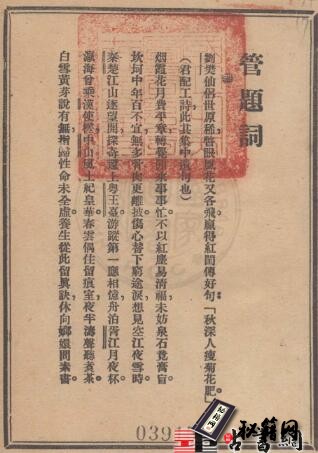 管題詞
劉樊仙侶世原稀管眼曇花又各飛贏得紅閨傳好句「秋深人瘦菊花肥」
(君配工詩此其集中警句也)
烟霞花月費平章轉覺閒來事事忙不以紅塵易清福未妨泉石竟膏肓
坎坷中年百不宜無多骨肉更離披傷心替下窮途淚想見空江夜雪時
秦楚江山逐望開探奇還上粵王臺游蹤第一應相憶舟泊胥江月夜杯
瀛海曾乘漢使槎中山風土紀皇華春雲偶住留痕室夜半濤聲聽煮茶
白雪黃芽說有無指歸性命未全虛養生從此留真訣休向嫏嬛問素書
039
秘籍网
古